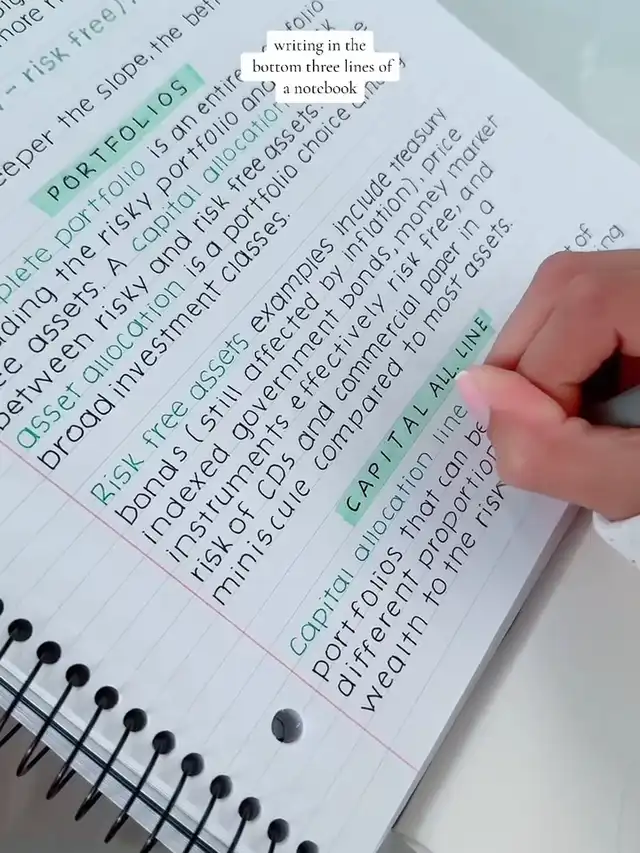 writing in the
bottom three lines of
a notebook
more
- risk free)
eeper the slope, the bet
PORTFOLIOS
plete portfolio is an entire portfolio
ding the risky portfolio and risk
ee assets. A capital allocation
between risky and risk free assets.
asset allocation is a portfolio choice among
broad investment classes.
Risk free assets examples include treasury
bonds (still affected by inflation), price
indexed government bonds, money market
instruments effectively risk free, and
risk of CDs and commercial paper in a
miniscule compared to most assets.
CAPITAL ALL. LINE
Capital allocation line
portfolios that can be
different proportion
wealth to the risk
t of
ing